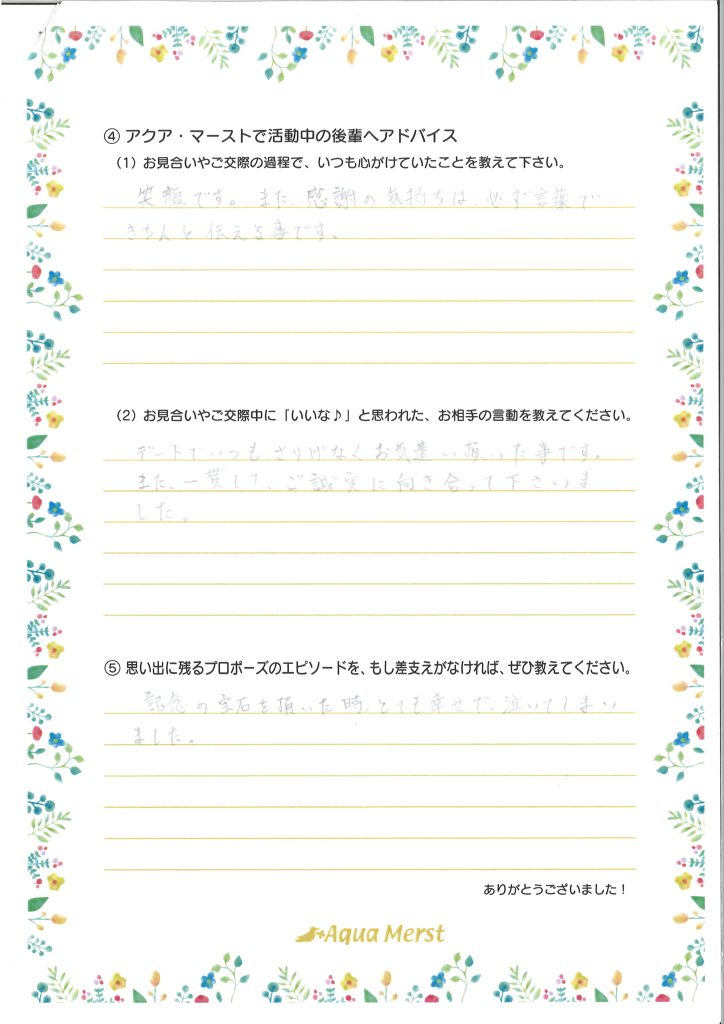 ④ アクア・マーストで活動中の後輩へアドバイス
（1）お見合いやご交際の過程で、いつも心がけていたことを教えて下さい。
笑顔です。また、感謝の気持ちは、必ず言葉で
きちんと伝える事です。
（2）お見合いやご交際中に「いいな♪」と思われた、お相手の言動を教えてください。
デートでいつもさりげなくお気遣い頂いた事です。
また、一貫して、ご誠実に向き合って下さいま
した。
⑤ 思い出に残るプロポーズのエピソードを、もし差支えがなければ、ぜひ教えてください。
記念の宝石を頂いた時、とても幸せで、泣いてしまい
ました。
ありがとうございました！
Aqua Merst